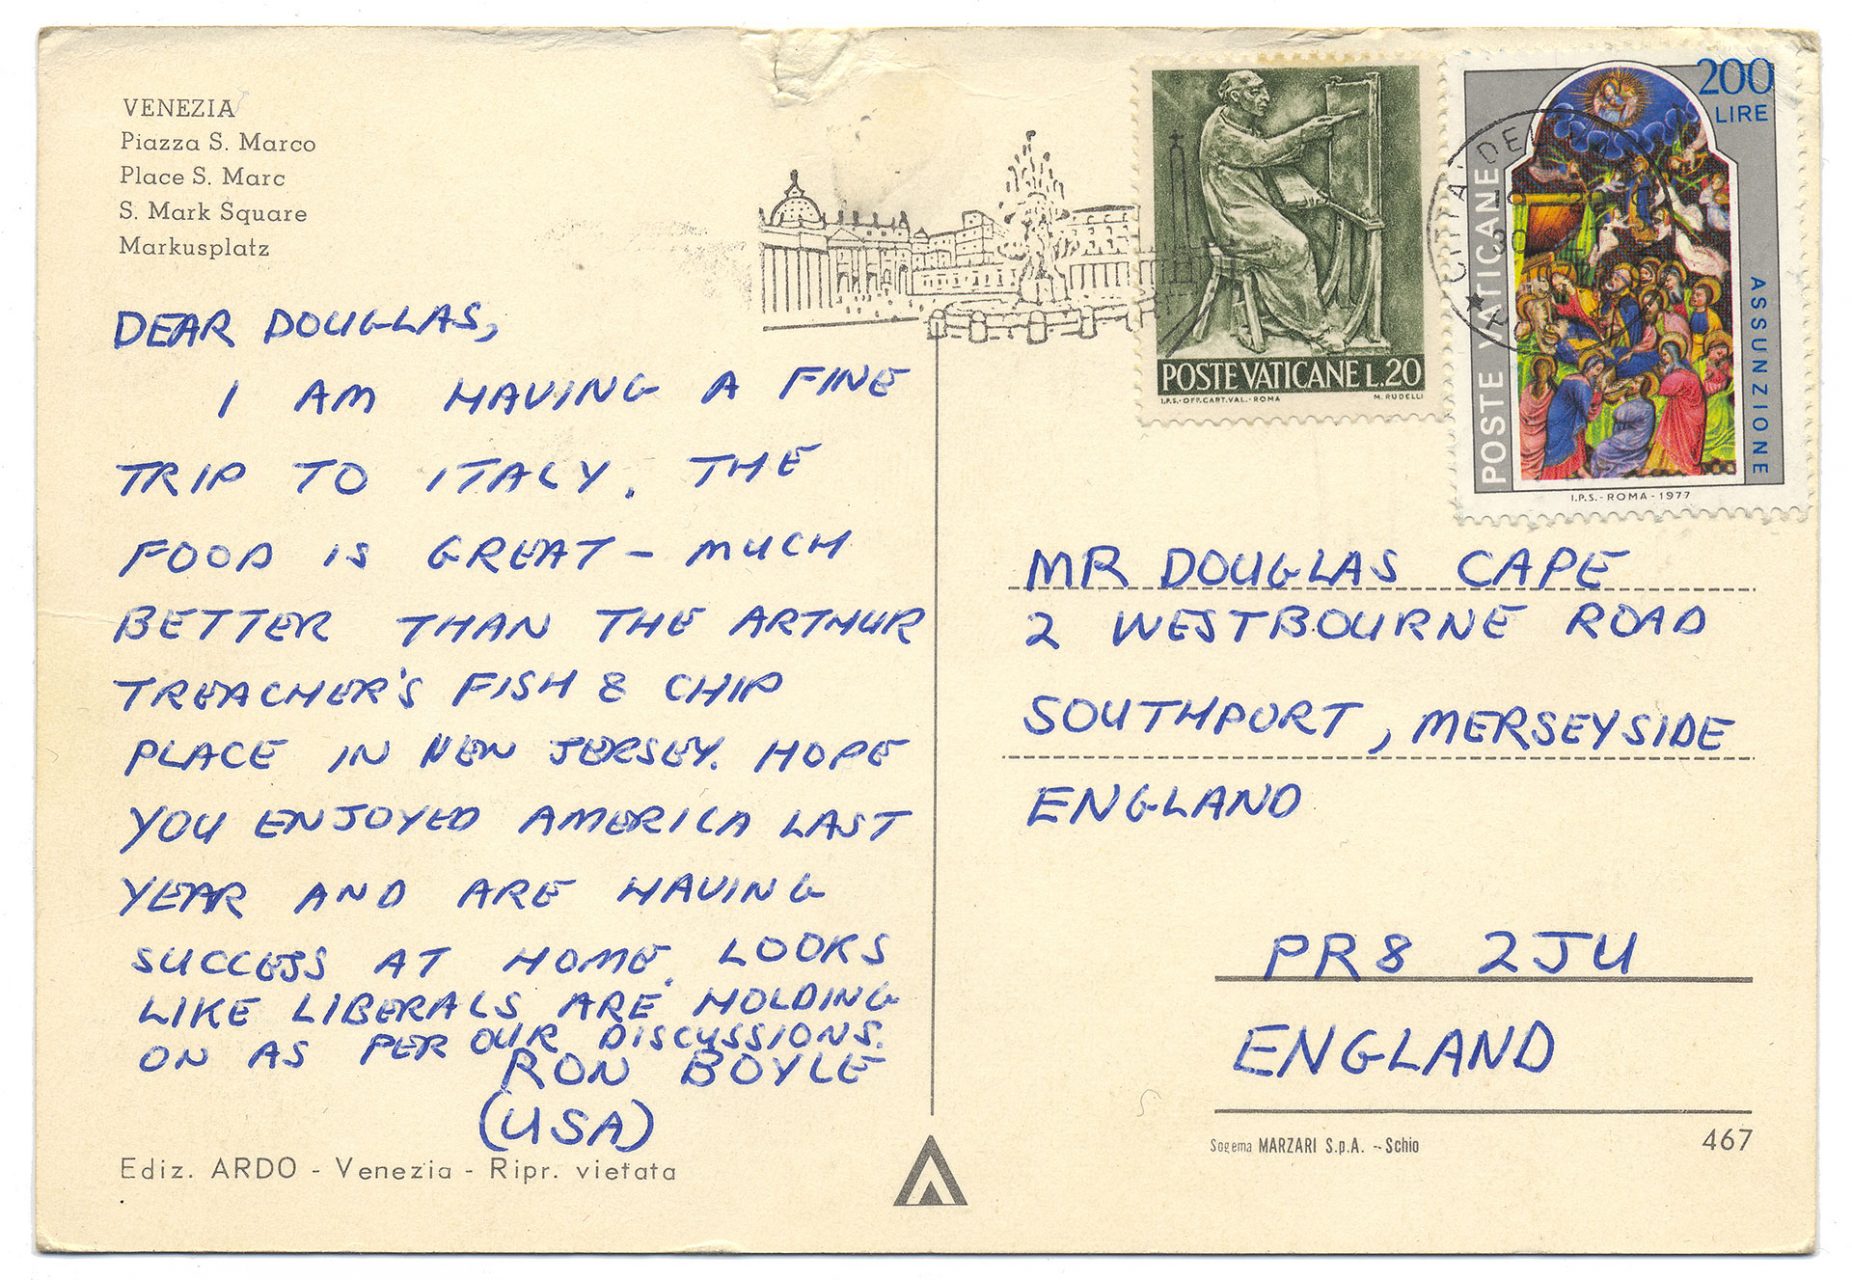 VENEZIA
Piazza S. Marco
Place S. Marc
S. Mark Square
Markusplatz
DEAR DOUGLAS,
I AM HAVING A FINE
TRIP TO ITALY. THE
FOOD IS GREAT - MUCH
BETTER THAN THE ARTHUR
TREACHER'S FISH & CHIP
PLACE IN NEW JERSEY. HOPE
YOU ENJOYED AMERICA LAST
YEAR AND ARE HAVING
SUCCESS AT HOME. LOOKS
LIKE LIBERALS ARE HOLDING
ON AS PER OUR DISCUSSIONS.
RON BOYLE
(USA)
Ediz. ARDO - Venezia - Ripr. vietata
POSTE VATICANE L.20
I.P.S.-OFF.CART.VAL.-ROMA M. RUDELLI
200
LIRE
POSTE VATICANE
ASSUNZIONE
I.P.S.-ROMA-1977
CITTA DE
MR DOUGLAS CAPE
2 WESTBOURNE ROAD
SOUTHPORT, MERSEYSIDE
ENGLAND
PR8 2JU
ENGLAND
Sogema MARZARI S.p.A. - Schio
467